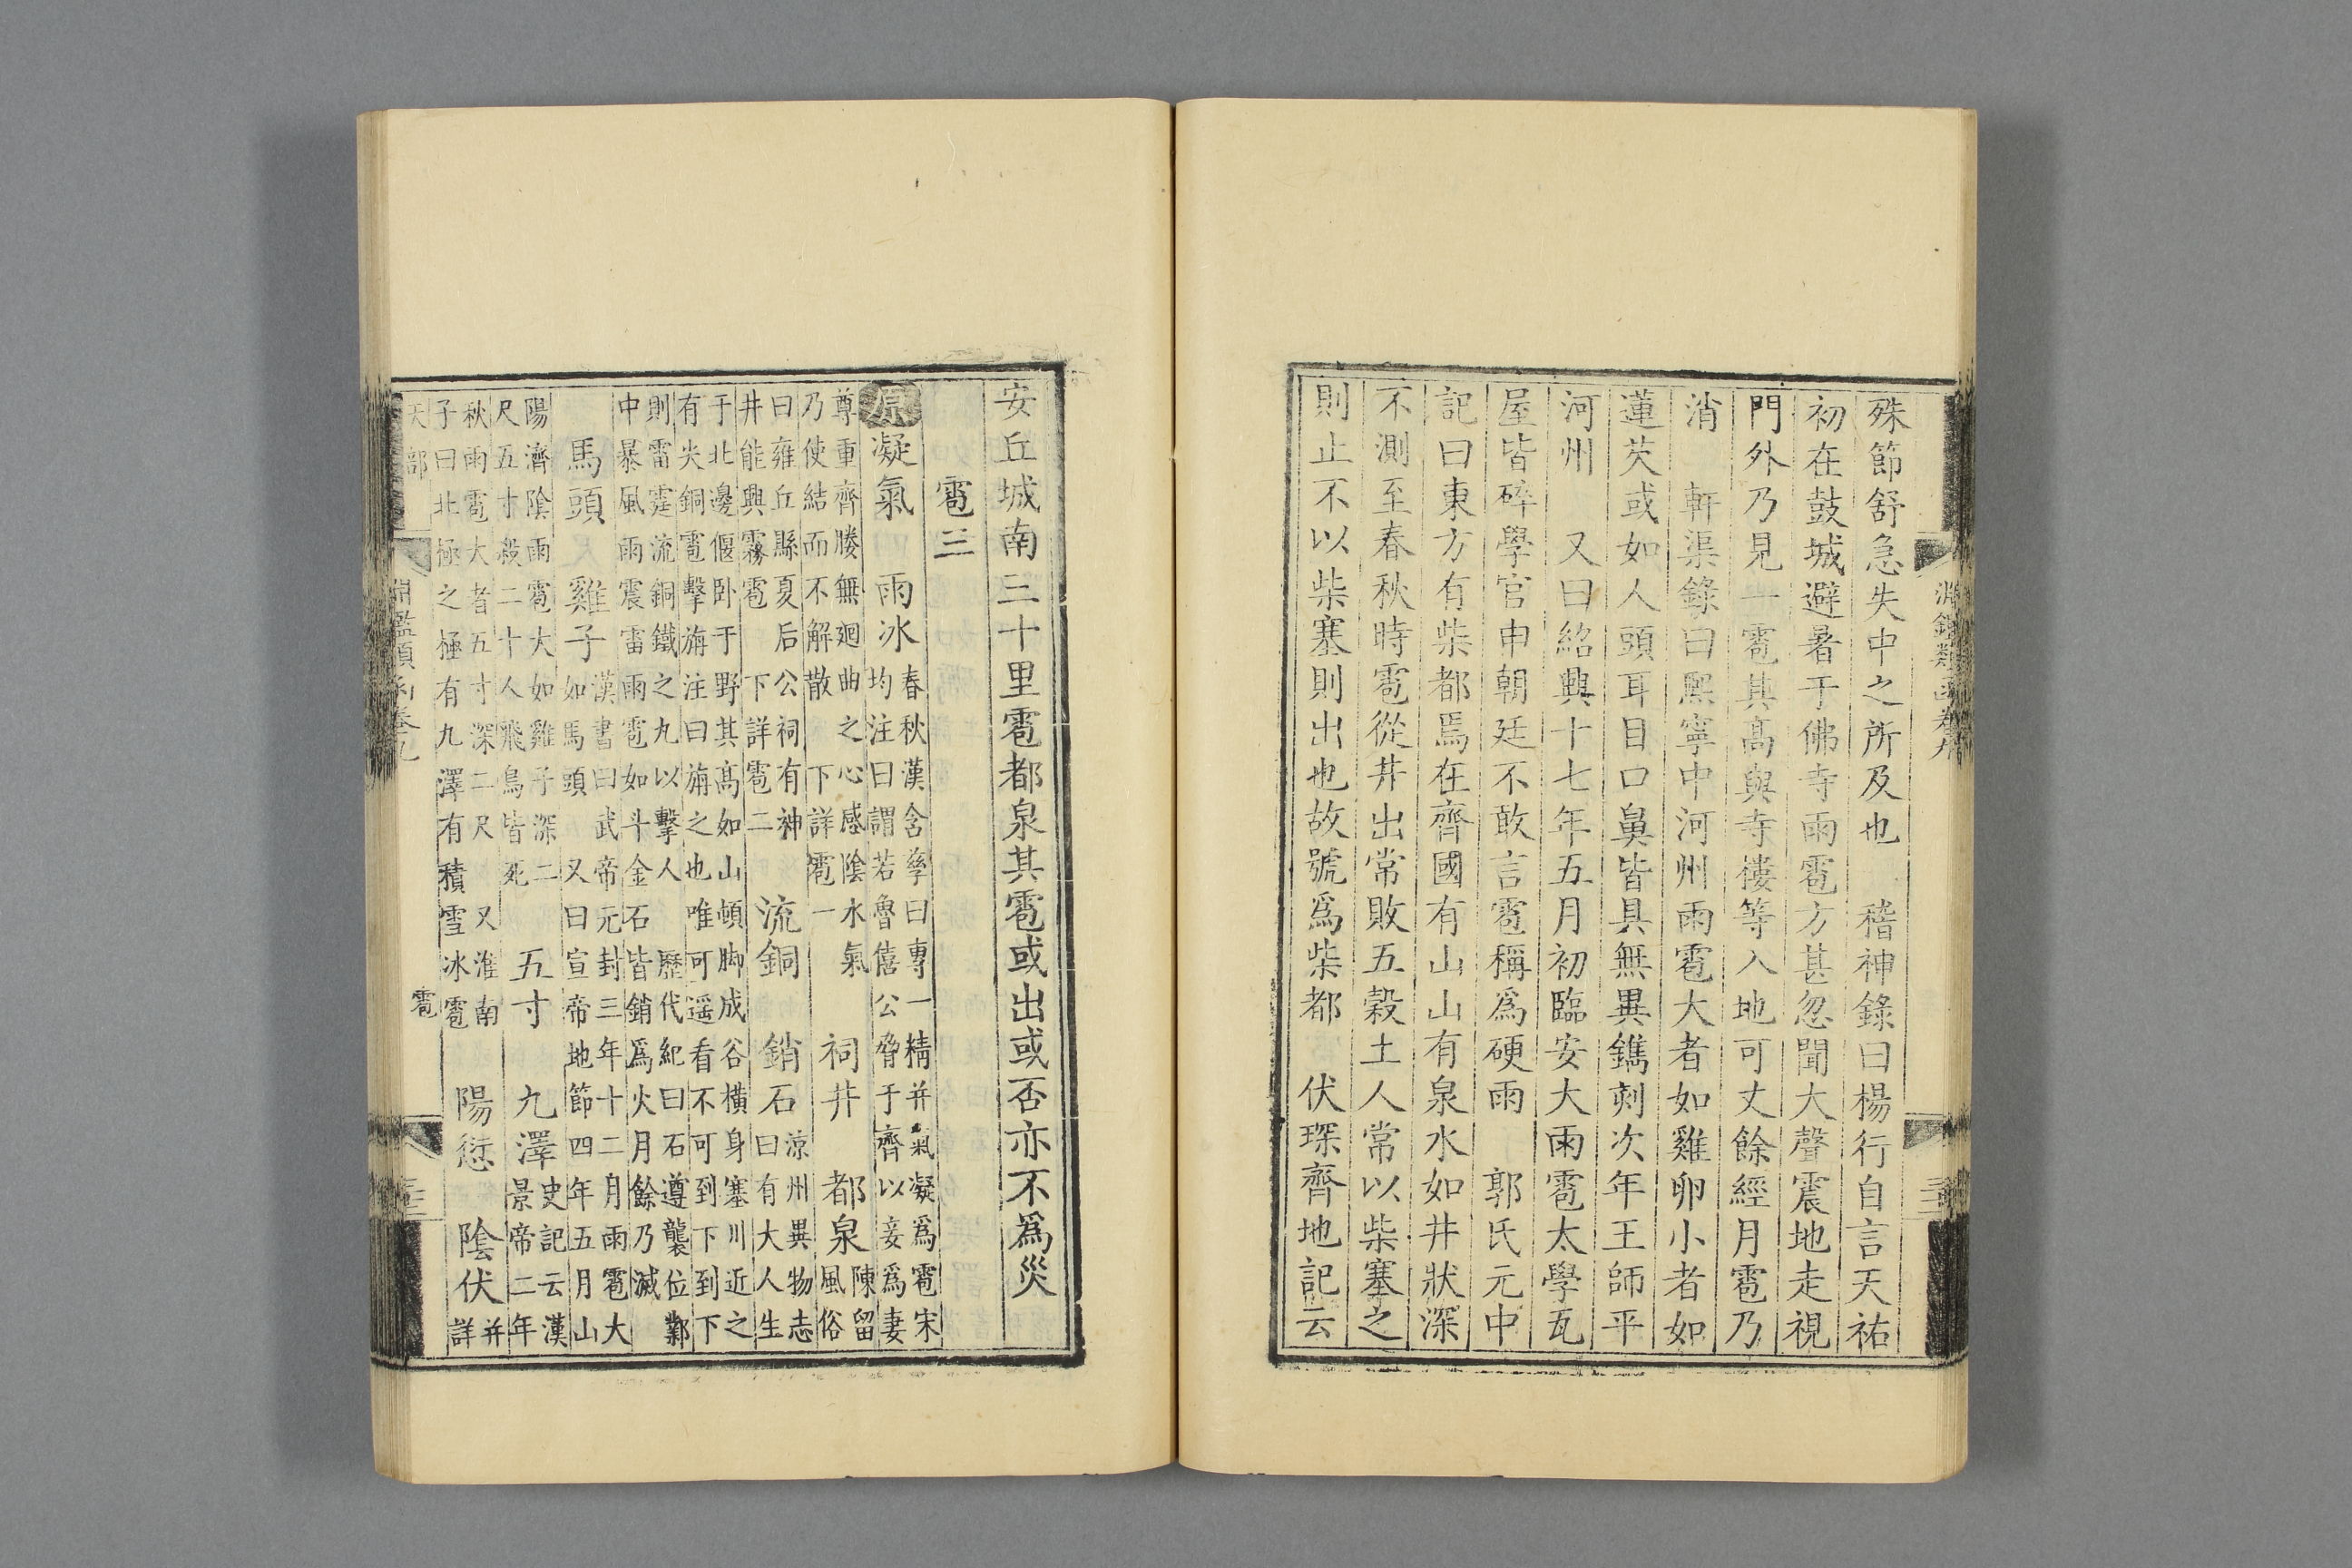 殊節舒急失中之所及也　稽神錄曰楊行自言天祐
初在鼓城避暑于佛寺雨雹方甚忽聞大聲震地走視
門外乃見一雹其高與寺樓等入地可丈餘經月雹乃
消　軒渠錄曰熙寧中河州雨雹大者如雞卵小者如
蓮芡或如人頭耳目口鼻皆具無異鐫刻次年王師平
河州　又曰紹興十七年五月初臨安大雨雹太學瓦
屋皆碎學官申朝廷不敢言雹稱爲硬雨　郭氏元中
記曰東方有柴都焉在齊國有山山有泉水如井狀深
不測至春秋時雹從井出常敗五穀土人常以柴塞之
則止不以柴塞則出也故號爲柴都　伏琛齊地記云
安丘城南三十里雹都泉其雹或出或否亦不爲災
雹三
原凝氣　雨冰春秋漢含孳曰專一精并氣凝爲雹宋均注曰謂若魯僖公脅于齊以妾爲妻
尊重齊媵無廻曲之心感陰水氣乃使結而不解散　下詳雹一　祠井　都泉陳留風俗
曰雍丘縣夏后公祠有神井能興霧雹　下詳雹二　流銅　銷石涼州異物志曰有大人生
于北邊偃卧于野其高如山頓脚成谷橫身塞川近之有灾銅雹擊旃注曰旃之也唯可遥看不可到下到下
則雷霆流銅鐵之丸以擊人　歷代紀曰石遵襲位鄴中暴風雨震雷雨雹如斗金石皆銷爲火月餘乃滅
馬頭　雞子漢書曰武帝元封三年十二月雨雹大如馬頭　又曰宣帝地節四年五月山
陽濟陰雨雹大如雞子深二尺五寸殺二十人飛鳥皆死　五寸　九澤史記云漢景帝二年
秋雨雹大者五寸深二尺　又淮南子曰北極之極有九澤有積雪冰雹　陽愆　陰伏并詳
天部
淵鑑類函卷九
雹
淵鑑類函卷九